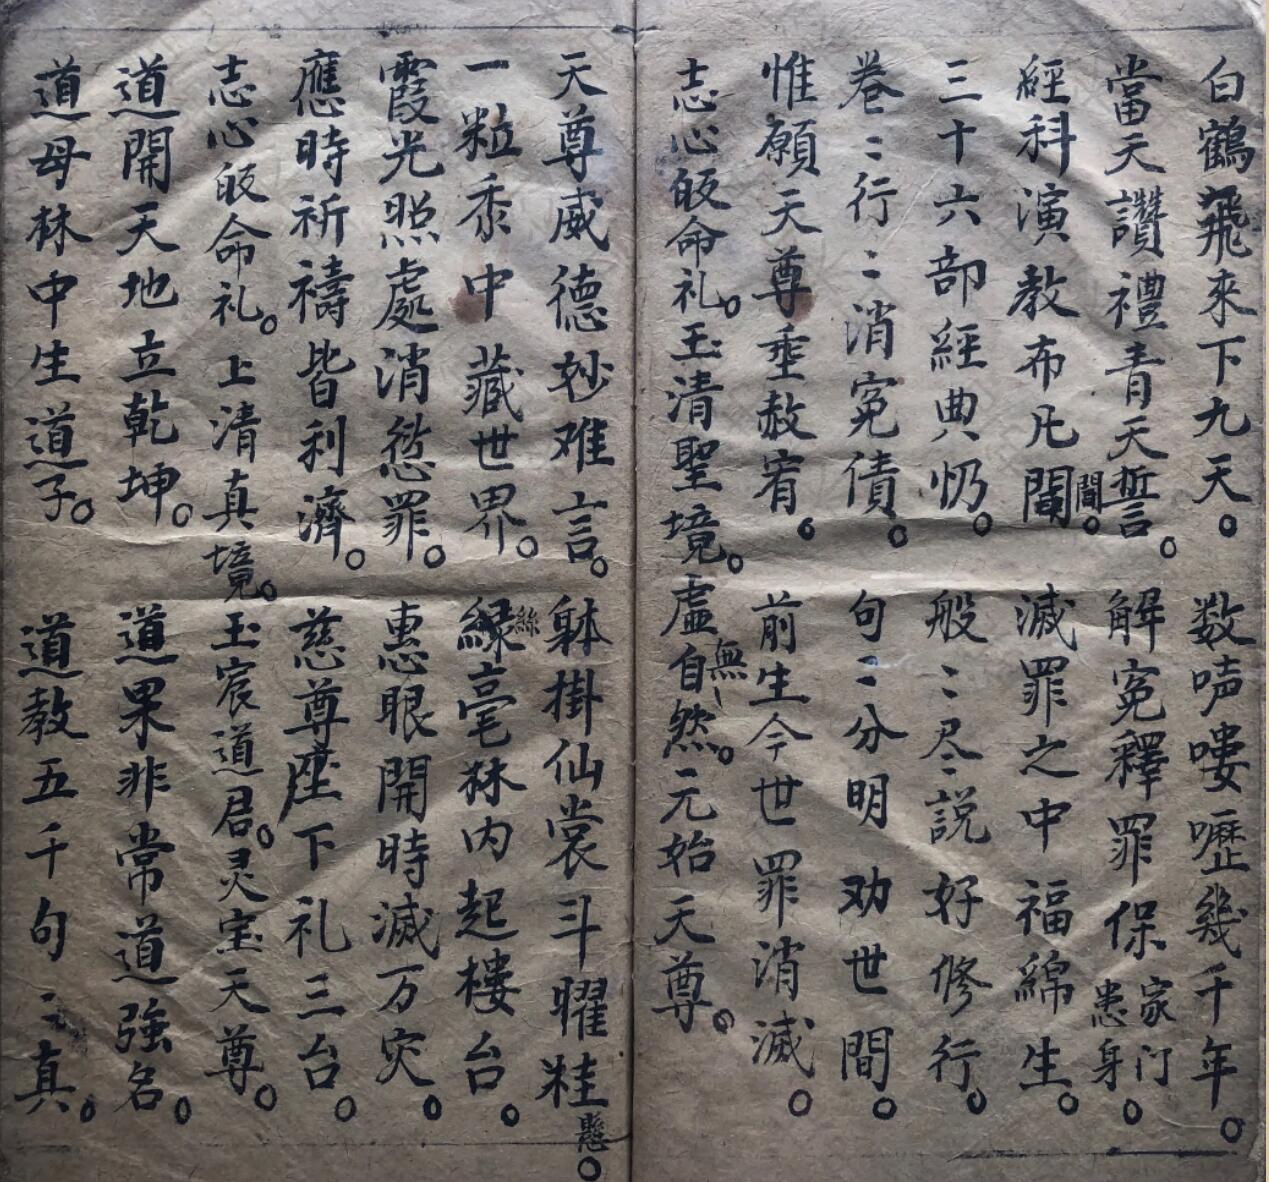 白鶴飛來下九天。数声嘍嚦幾千年。
當天讚禮青天誓。解冤釋罪保家门患身。
經科演教布凡閫閫。滅罪之中福綿生。
三十六部經典忉。般〻尽說好修行。
卷〻行〻消冤債。句〻分明劝世間。
惟願天尊垂赦宥。前生今世罪消滅。
志心皈命礼。玉清聖境。虛無自然。元始天尊。
天尊威德妙难言。躰掛仙裳斗曜懸。
一粒黍中藏世界。緑絲毫林内起樓台。
霞光照處消愆罪。惠眼開時滅万灾。
應時祈禱皆利濟。慈尊座下礼三台。
志心皈命礼。上清真境。玉宸道君。灵宝天尊。
道開天地立乾坤。道果非常道強名。
道母林中生道子。道教五千句〻真。